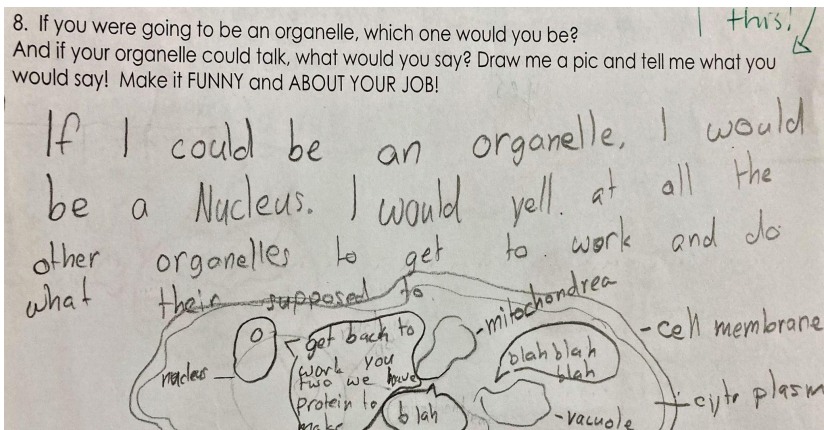 I this!
8. If you were going to be an organelle, which one would you be?
And if your organelle could talk, what would you say? Draw me a pic and tell me what you
would say! Make it FUNNY and ABOUT YOUR JOB!
If I could be an organelle, I would
be a Nucleus. I would yell. at all the
other organelles to get to work and do
what their supposed to.
-mitochondrea
-cell membrane
get back to
work you
two we have
protein to
make
blah blah
blah
nucleus
blah
-vacuole
-cyto plasm